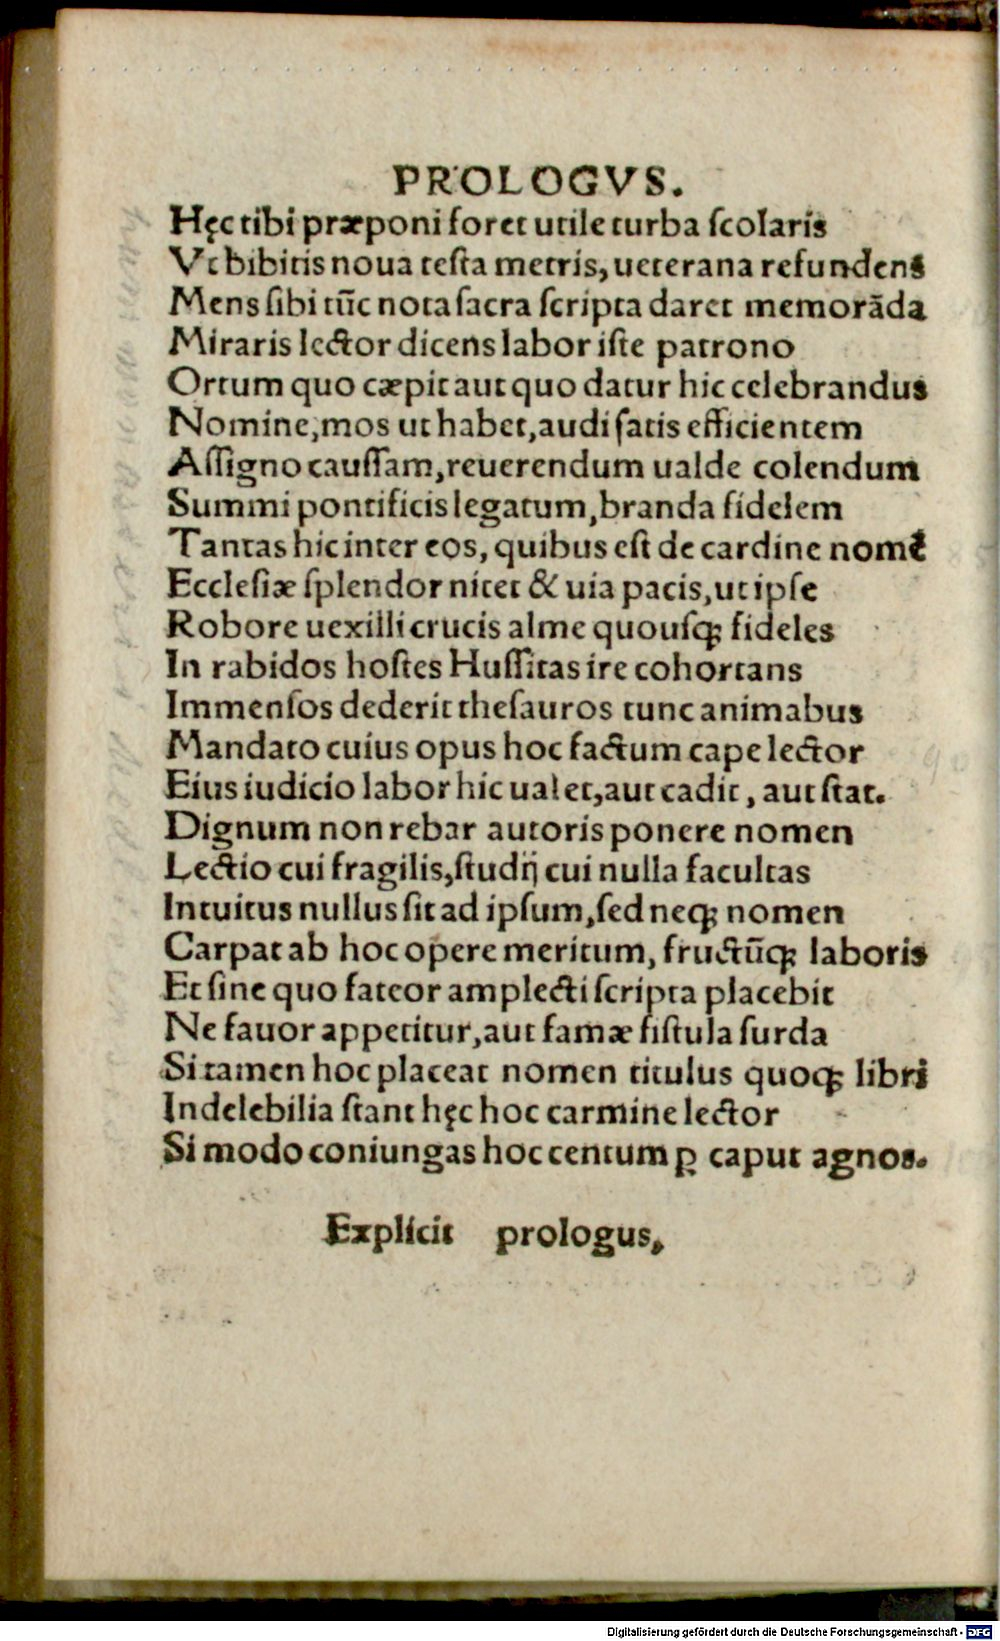 PROLOGVS.
Hęc tibi præponi foret utile turba ſcolaris
Vt bibitis noua teſta metris, ueterana refundens
Mens ſibi tūc nota ſacra ſcripta daret memorãda
Miraris lector dicens labor iſte patrono
Ortum quo cæpit aut quo datur hic celebrandus
Nomine, mos ut habet, audi ſatis efficientem
Aſſigno cauſſam, reuerendum ualde colendum
Summi pontificis legatum, branda fidelem
Tantas hic inter eos, quibus eſt de cardine nomē
Eccleſiæ ſplendor nitet & uia pacis, ut ipſe
Robore uexilli crucis alme quouſqꝫ fideles
In rabidos hoſtes Huſſitas ire cohortans
Immenſos dederit theſauros tunc animabus
Mandato cuius opus hoc factum cape lector
Eius iudicio labor hic ualet, aut cadit, aut ſtat.
Dignum non rebar autoris ponere nomen
Lectio cui fragilis, ſtudij cui nulla facultas
Intuitus nullus ſit ad ipſum, ſed neqꝫ nomen
Carpat ab hoc opere meritum, fructūqꝫ laboris
Et ſine quo fateor amplecti ſcripta placebit
Ne fauor appetitur, aut famæ fiſtula ſurda
Si tamen hoc placeat nomen titulus quoqꝫ libri
Indelebilia ſtant hęc hoc carmine lector
Si modo coniungas hoc centum ꝑ caput agnos.
Explicit prologus,
Digitalisierung gefördert durch die Deutsche Forschungsgemeinschaft - DFG